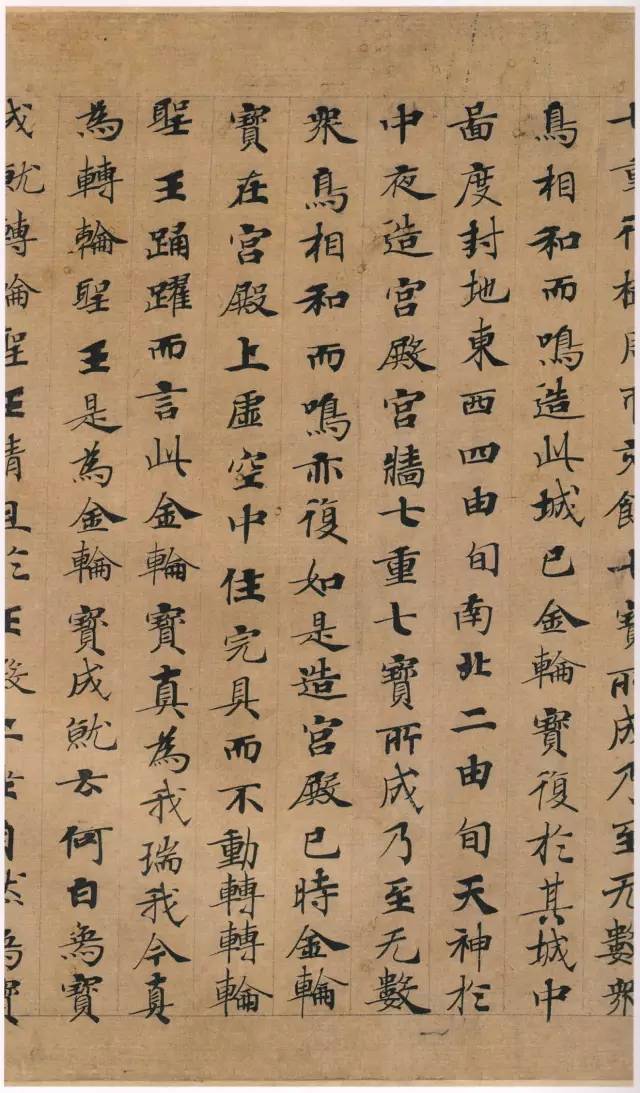 七重行樹周匝交餝七寶所成乃至无數衆
鳥相和而鳴造此城已金輪寶復於其城中
啚度封地東西四由旬南北二由旬天神於
中夜造宮殿宮牆七重七寶所成乃至无數
衆鳥相和而鳴亦復如是造宮殿已時金輪
寶在宮殿上虛空中住完具而不動轉轉輪
聖王踊躍而言此金輪寶真為我瑞我今真
為轉輪聖王是為金輪寶成就云何白象寶
成就轉輪聖王清旦於正殿上坐自然象寶